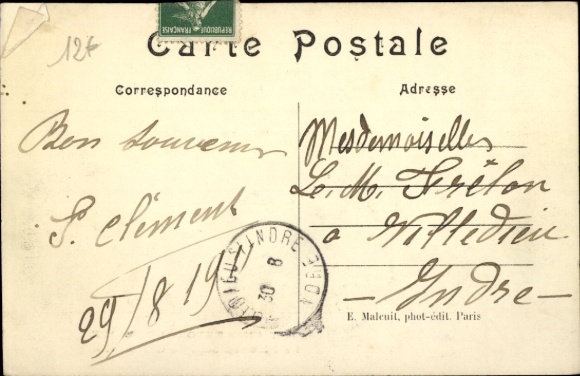 RÉPUBLIQUE FRANÇAISE
12f
Carte Postale
Correspondance
Adresse
Bon souvenir
S. Clément
29/8/19
Mesdemoiselles
L. M. Frélon
a Villedieu
— Indre —
INDRE
30 8
E. Malcuit, phot-édit. Paris